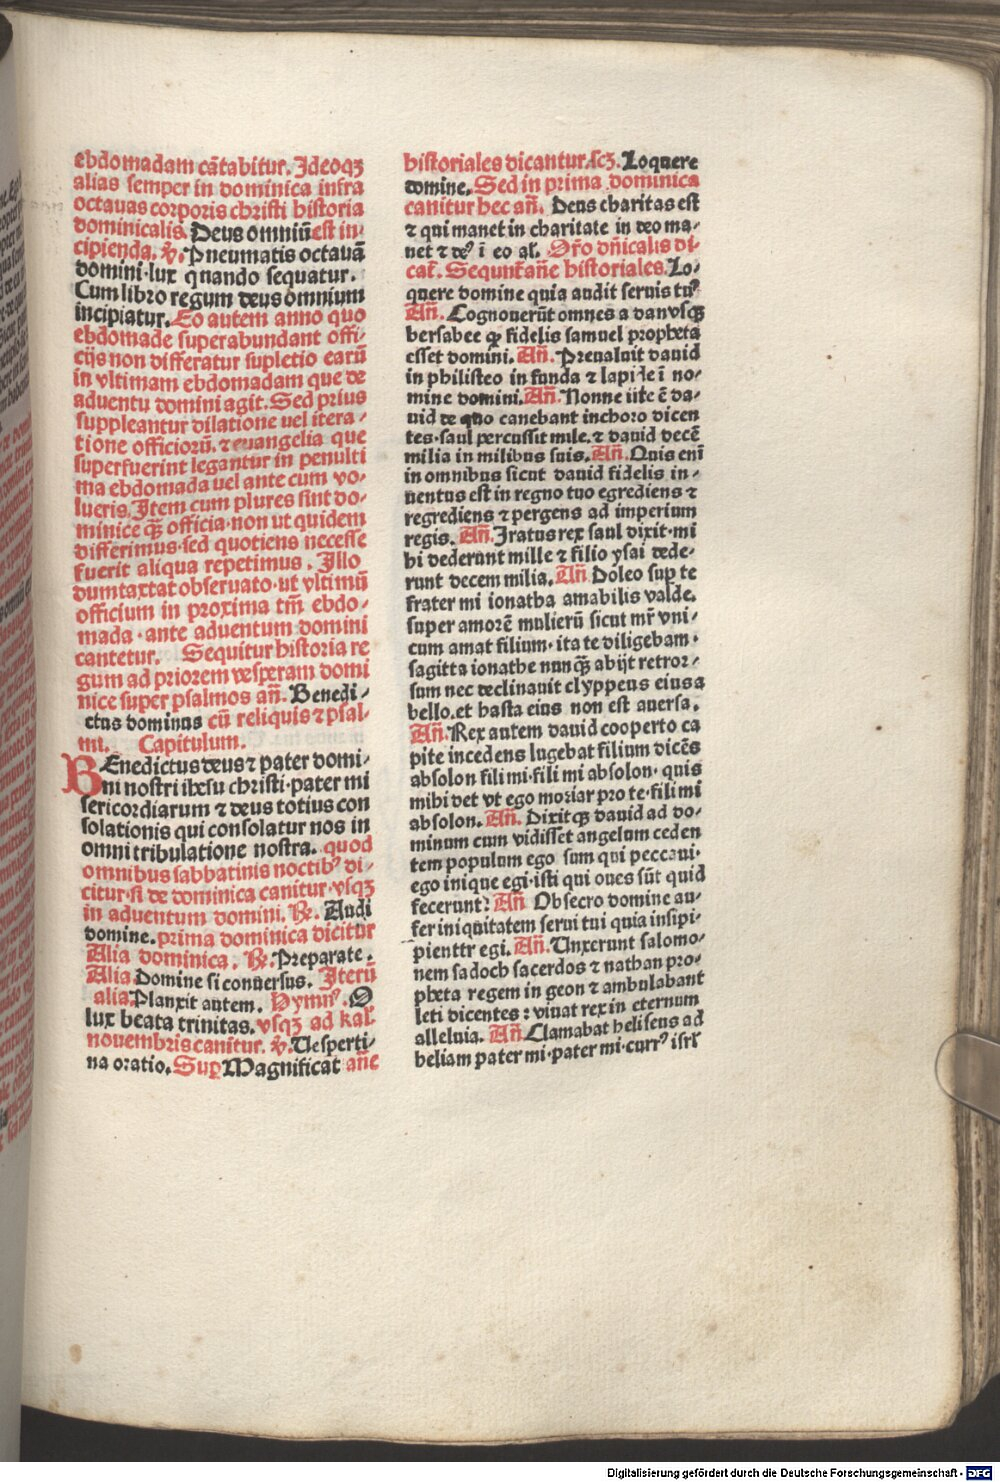 ebdomadam cãtabitur. Jdeoqꝫ
alias semper in dominica infra
octauas corporis christi historia
dominicalis. Deus omniũ est in-
cipienda. ℣. Pneumatis octauã
domini·lux quando sequatur.
Cum libro regum deus omnium
incipiatur. Eo autem anno quo
ebdomade superabundant offi-
cijs non differatur supletio earũ
in vltimam ebdomadam que de
aduentu domini agit. Sed prius
suppleantur dilatione uel itera-
tione officiorũ. ⁊ euangelia que
superfuerint legantur in penulti
ma ebdomada uel ante cum vo-
lueris. Jtem cum plures sint do-
minice qꝫ̃ officia·non ut quidem
differimus·sed quotiens necesse
fuerit aliqua repetimus. Jllo
dumtaxtat obseruato·ut vltimũ
officium in proxima tm̃ ebdo-
mada·ante aduentum domini
cantetur. Sequitur historia re
gum ad priorem vesperam domi
nice super psalmos añ. Benedi-
ctus dominus cũ reliquis ⁊ psal-
mi. Capitulum.
BEnedictus deus ⁊ pater domi-
ni nostri ihesu christi·pater mi
sericordiarum ⁊ deus totius con
solationis qui consolatur nos in
omni tribulatione nostra. quod
omnibus sabbatinis noctibꝰ di-
citur·si de dominica canitur·vsqꝫ
in aduentum domini. ℞. Audi
domine. prima dominica dicitur
Alia dominica. ℞. Preparate.
Alia. Domine si conuersus. Jterũ
alia. Planxit autem. Hymnꝰ. O
lux beata trinitas. vsqꝫ ad kal.
nouembris canitur. ℣. Uesperti-
na oratio. Suꝑ Magnificat añe
historiales dicantur·scꝫ. Loquere
domine. Sed in prima dominica
canitur hec añ. Deus charitas est
⁊ qui manet in charitate in deo ma-
net ⁊ deꝰ ĩ eo al. Or̃o dñicalis di-
cat̃. Sequnt̃ añe historiales. Lo-
quere domine quia audit seruis tuꝰ
Añ. Cognouerũt omnes a dan vsqꝫ
bersabee qꝫ fidelis samuel propheta
esset domini. Añ. Preualuit dauid
in philisteo in funda ⁊ lapide ĩ no-
mine domini. Añ. Nonne iste ẽ da-
uid de quo canebant in choro dicen
tes·saul percussit mile. ⁊ dauid decẽ
milia in milibus suis. Añ. Quis enĩ
in omnibus sicut dauid fidelis in-
uentus est in regno tuo egrediens ⁊
regrediens ⁊ pergens ad imperium
regis. Añ. Jratus rex saul dixit·mi
hi dederunt mille ⁊ filio ysai dede-
runt decem milia. Añ. Doleo suꝑ te
frater mi ionatha amabilis valde.
super amorẽ mulierũ sicut mr̃ vni-
cum amat filium·ita te diligebam·
sagitta ionathe nunqꝫ̃ abijt retror-
sum nec declinauit clyppeus eius a
bello. et hasta eius non est auersa.
Añ. Rex autem dauid cooperto ca
pite incedens lugebat filium dicẽs
absolon fili mi·fili mi absolon· quis
mihi det vt ego moriar pro te·fili mi
absolon. Añ. Dixitqꝫ dauid ad do-
minum cum vidisset angelum ceden
tem populum ego sum qui peccaui·
ego inique egi·isti qui oues sũt quid
fecerunt? Añ Obsecro domine au-
fer iniquitatem serui tui quia insipi-
pienttr egi. Añ. Unxerunt salomo-
nem sadoch sacerdos ⁊ nathan pro-
pheta regem in geon ⁊ ambulabant
leti dicentes: viuat rex in eternum
alleluia. Añ. Clamabat heliseus ad
heliam pater mi·pater mi·currꝰ isrl̃
Digitalisierung gefördert durch die Deutsche Forschungsgemeinschaft - DFG